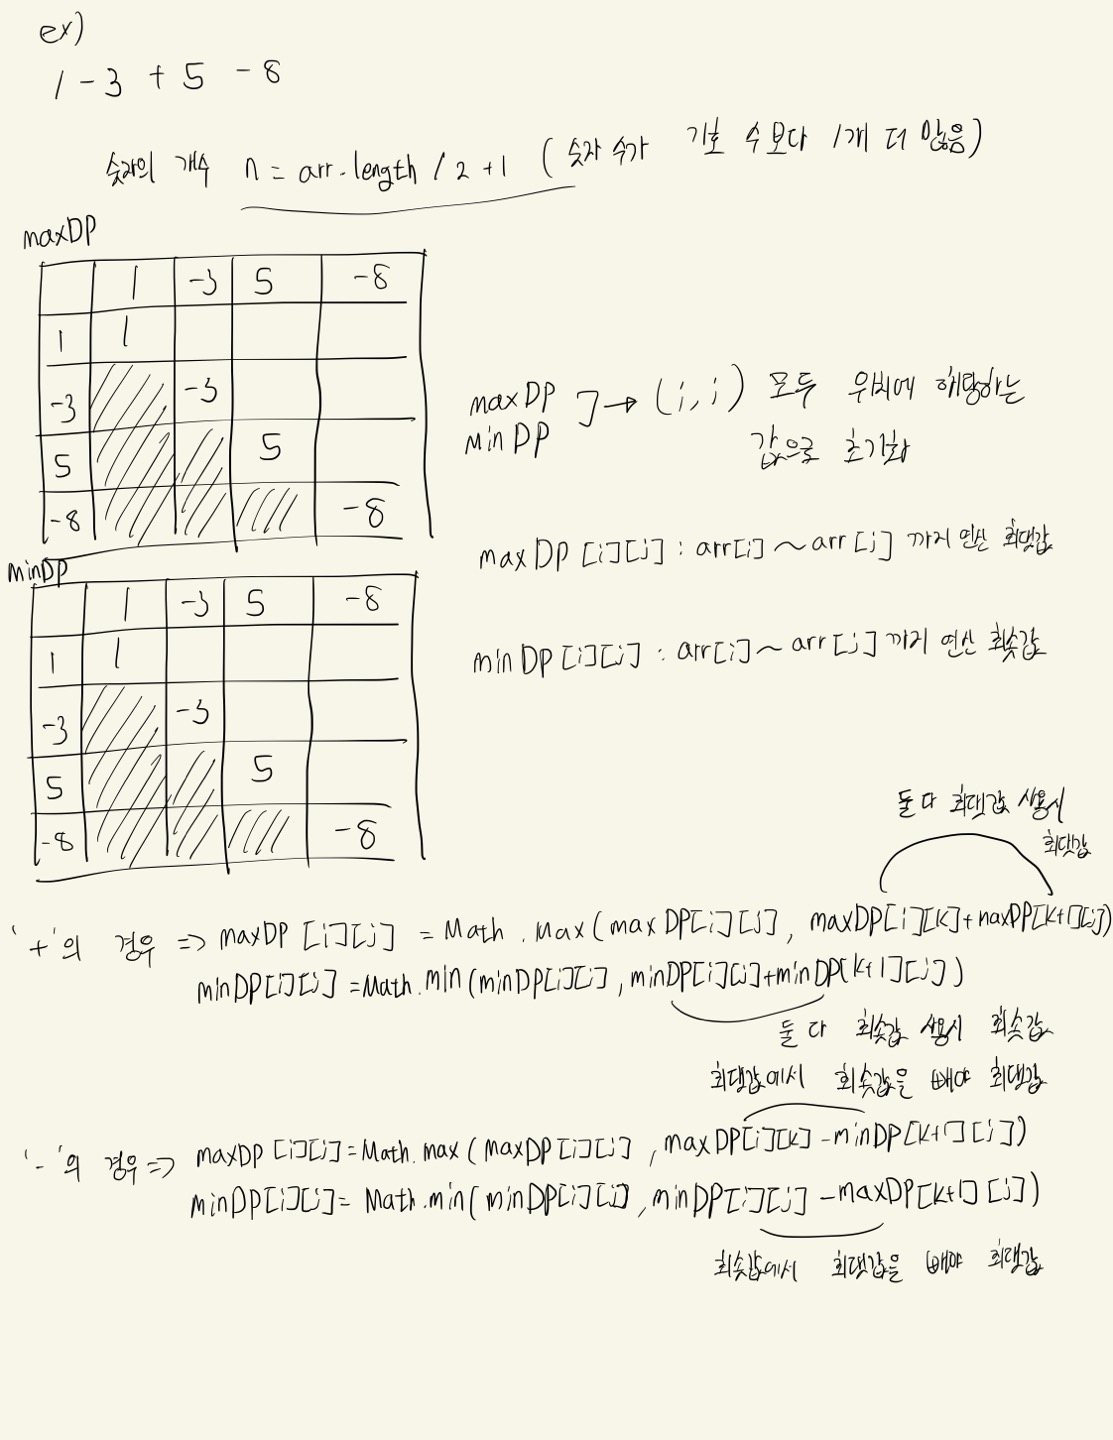 ex)
1 - 3 + 5 - 8
숫자의 개수 n = arr.length / 2 + 1 ( 숫자 수가 기호 수보다 1개 더 많음 )
maxDP
1 -3 5 -8
1 1
-3 -3
5 5
-8 -8
maxDP
minDP ] → (i, i) 모두 위치에 해당하는
값으로 초기화
maxDP [i][j] : arr[i] ~ arr[j] 까지 연산 최댓값
minDP
1 -3 5 -8
1 1
-3 -3
5 5
-8 -8
minDP [i][j] : arr[i] ~ arr[j] 까지 연산 최솟값
둘 다 최댓값 사용시
최댓값
'+'의 경우 => maxDP [i][j] = Math . Max ( maxDP[i][j] , maxDP[i][k]+maxDP[k+1][j])
minDP[i][j] = Math.min (minDP[i][j] , minDP[i][j]+minDP[k+1][j])
둘 다 최솟값 사용시 최솟값
최댓값에서 최솟값을 빼야 최댓값
'-'의 경우 => maxDP [i][j] = Math.max ( maxDP[i][j] , maxDP[i][k] - minDP[k+1][j])
minDP[i][j] = Math.min( minDP[i][j] , minDP[i][j] - maxDP[k+1][j])
최솟값에서 최댓값을 빼야 최댓값